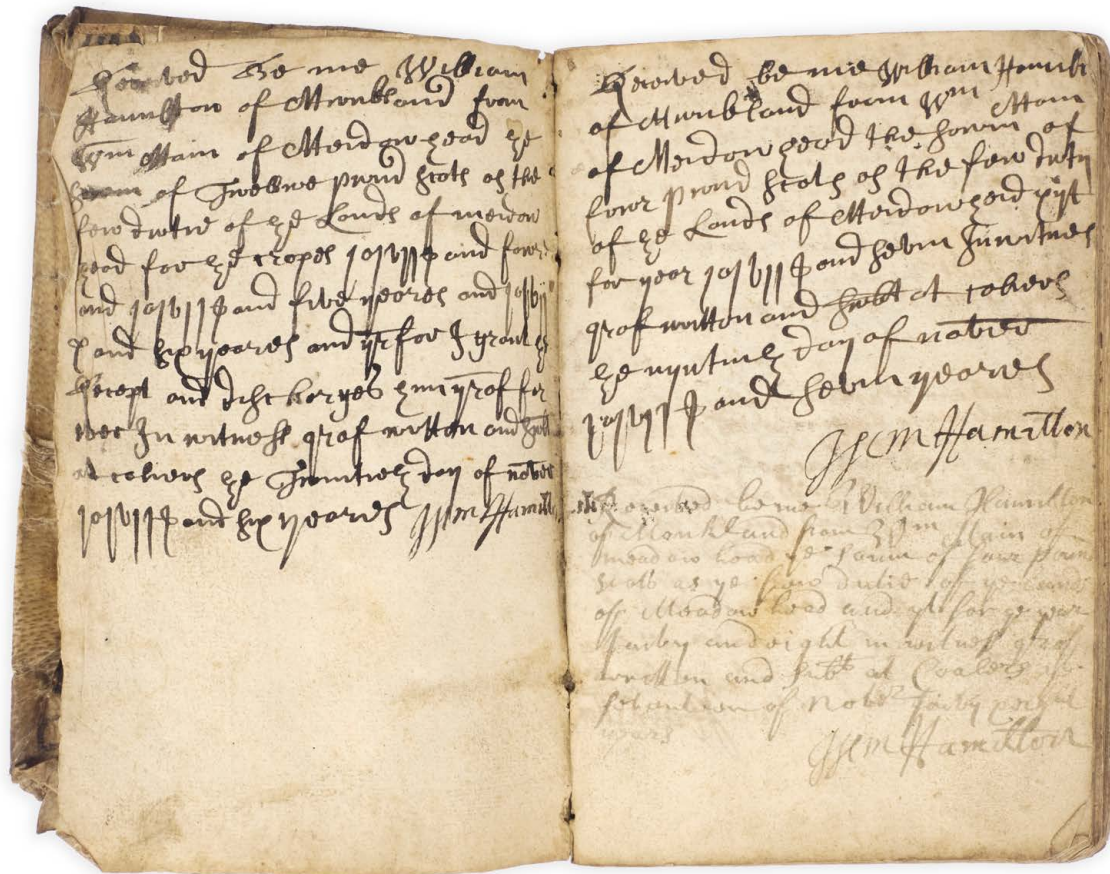 Receved be me William
Hamilton of Monkland from
Wm Main of Meidowheid ye
sowm of Twellwe pound scots as the
few dutie of ye Lands of meidow
head for ye cropes and fowr
and and five yeares and
and six yeares and yrfor I grant ye
Recept and dischargес him yrof for
ever In witness qrof written and
at coliers ye Twentie day of
and six yeares Wm Hamilton
Receved be me William Hamilt
of Munkland from Wm Main
of Meidowheid the sowm of
fowr pound scots as the few duty
of ye Lands of Meidowheid
for year and sevin In witnes
qrof written and subt at coliers
ye nyntine day of
and sevin yeares
Wm Hamilton
Receved be me William Hamilton
of Monkland from Wm Main of
meadowhead ye soum of four poun
Scots as ye few dutie of ye Lands
of Meadowhead and yt for ye year
and eight in witness qrof
written and subt at Coalers ye
of Novr
years
Wm Hamilton